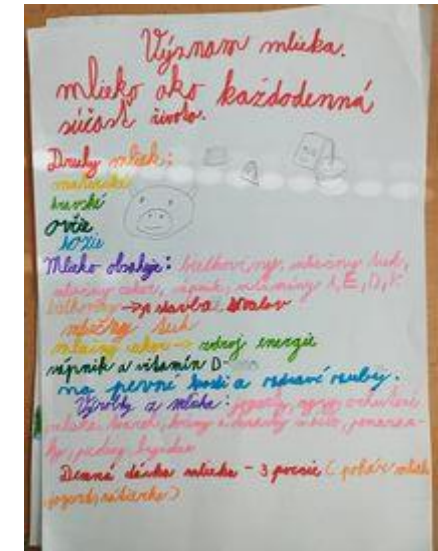 Význam mlieka.
mlieko ako každodenná
súčasť života.
Druhy mliek:
materské
kravské
ovčie
kozie
Mlieko obsahuje: bielkoviny, mliečny tuk,
mliečny cukor, vápnik, vitamíny A, E, D, K
bielkoviny → stavba svalov
mliečny tuk
mliečny cukor → zdroj energie
vápnik a vitamín D
na pevné kosti a zdravé zuby.
Výrobky z mlieka: jogurty, syry, ochutené
mlieka, tvaroh, krémy a dezerty, maslo,
pudingy, bryndza
Denná dávka mlieka - 3 porcie (pohár mlieka
jogurt, nátierka)